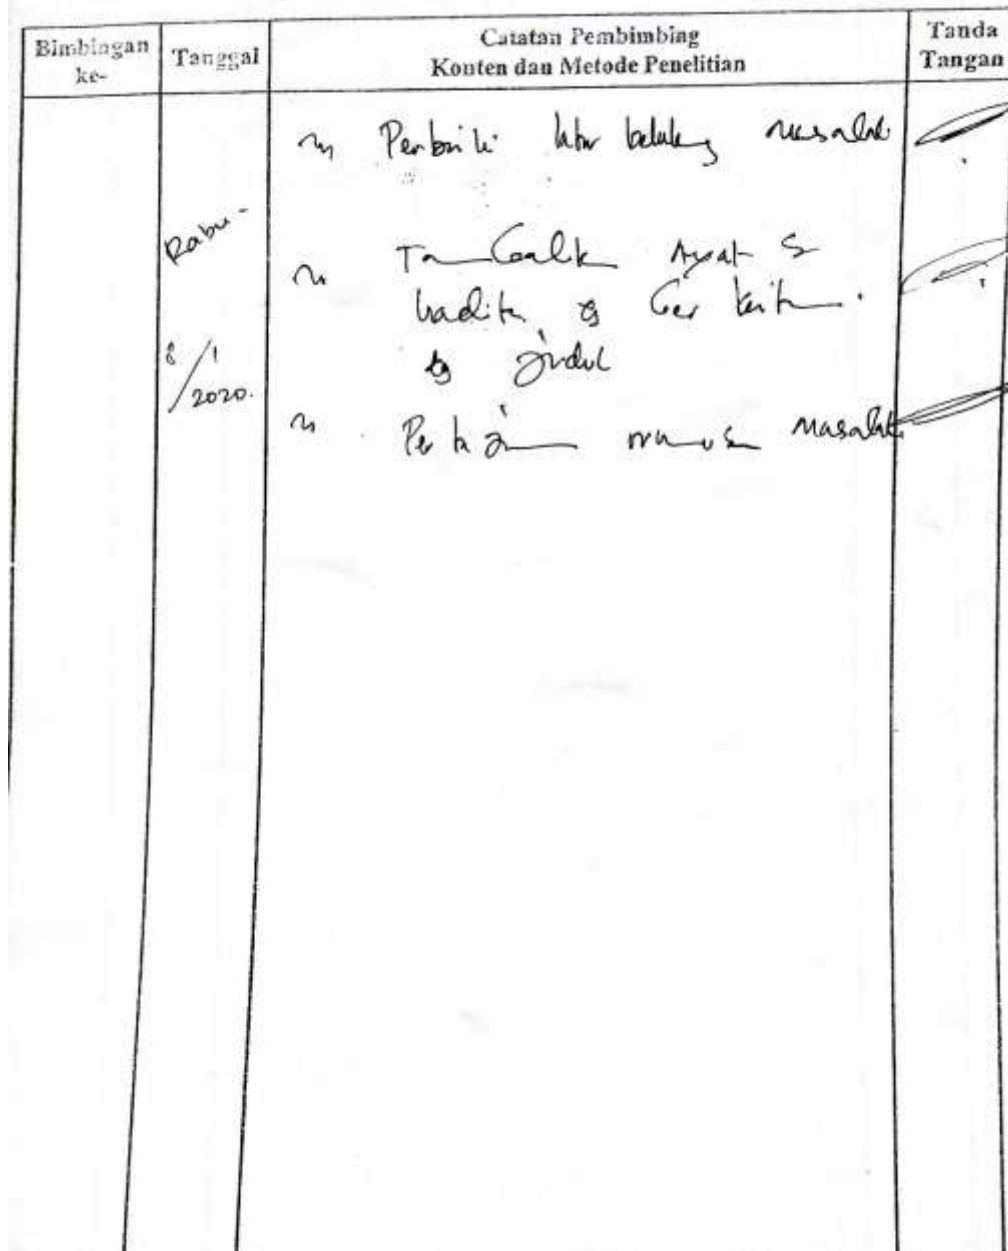 Bimbingan ke-
Tanggal
Catatan Pembimbing
Konten dan Metode Penelitian
Tanda Tangan
Perbaiki latar belakang masalah
Rabu -
Tambalk Ayat &
hadits yg berkaitan.
dg judul
8/1
2020.
Pertajam rumusan masalah